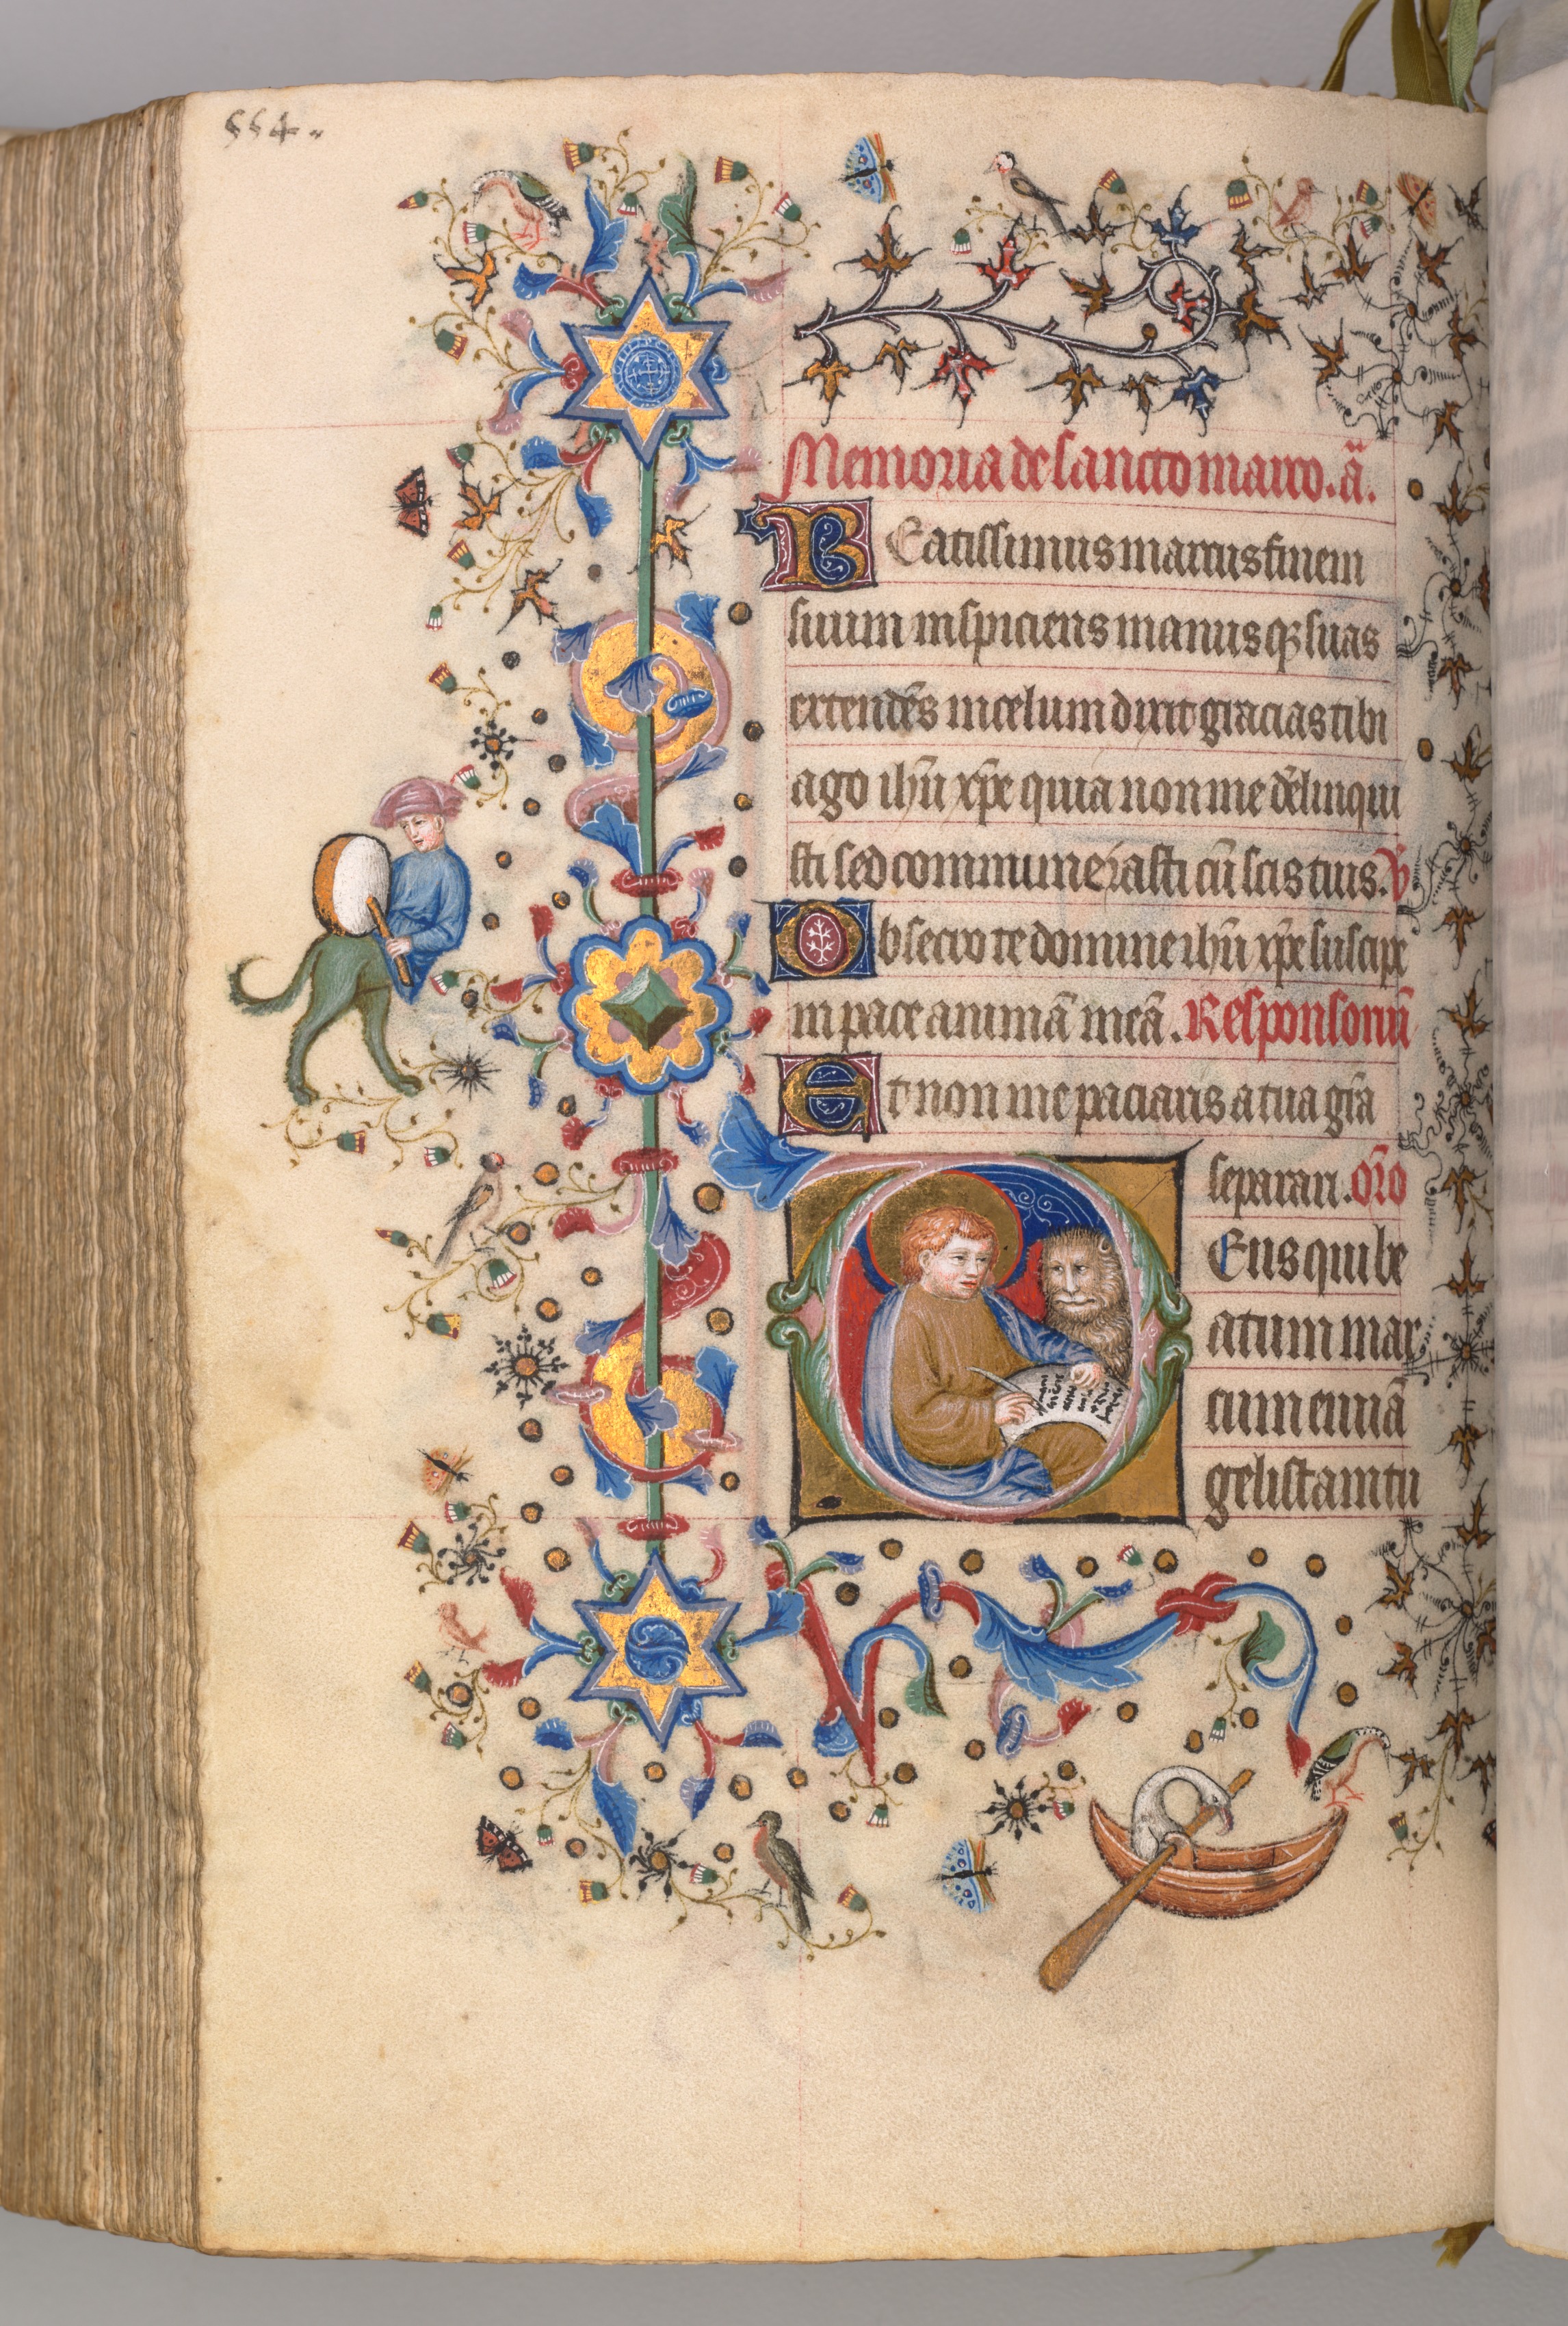 554.
Memoria de sancto marco. ã.
Beatissimus marcus finem
suum inspiciens manus qꝫ suas
extendẽs in celum dixit gracias tibi
ago ihũ xp̃e quia non me dẽlinqui
sti sed commune rasti cũ scis tuis. ỹ
Obsecro te domine ihũ xp̃e suscipe
in pace animã meã. Responsoriũ
Et non me paciaris a tua gr̃a
separari. or̃o
Deus qui be
atum mar
cum euuã
gelistam tu